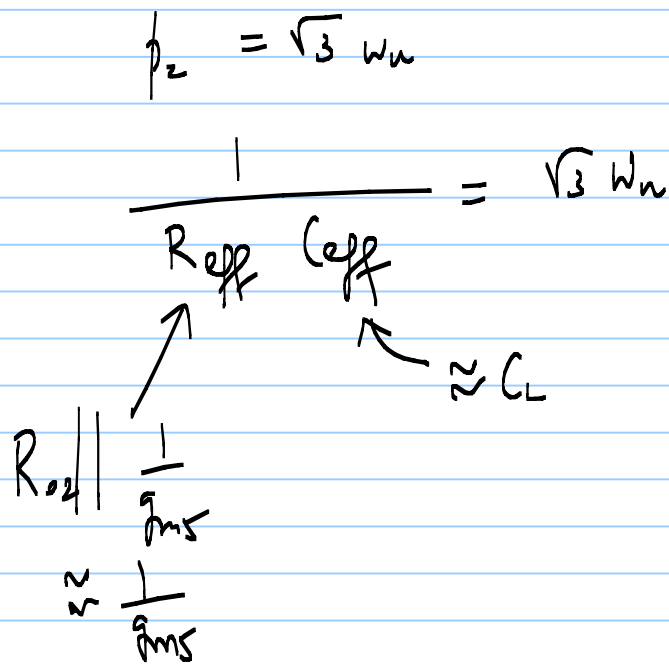 p₂ = √3 ωu
1 / (Reff Ceff) = √3 ωu
≈ CL
Ro2 || 1/gm5
≈ 1/gm5